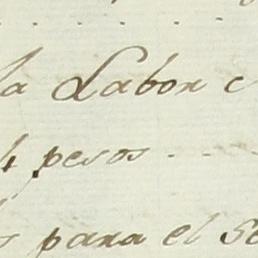 la Labor
4 pesos
para el